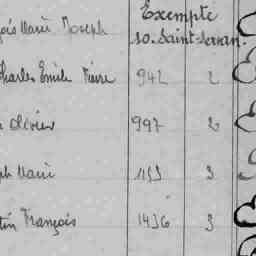 Exempté
çois Marie Joseph 10. Saint-Servan.
Charles Emile Pierre 942 2
Olivier 997 2
ph Marie 1153 3
tin François 1436 3